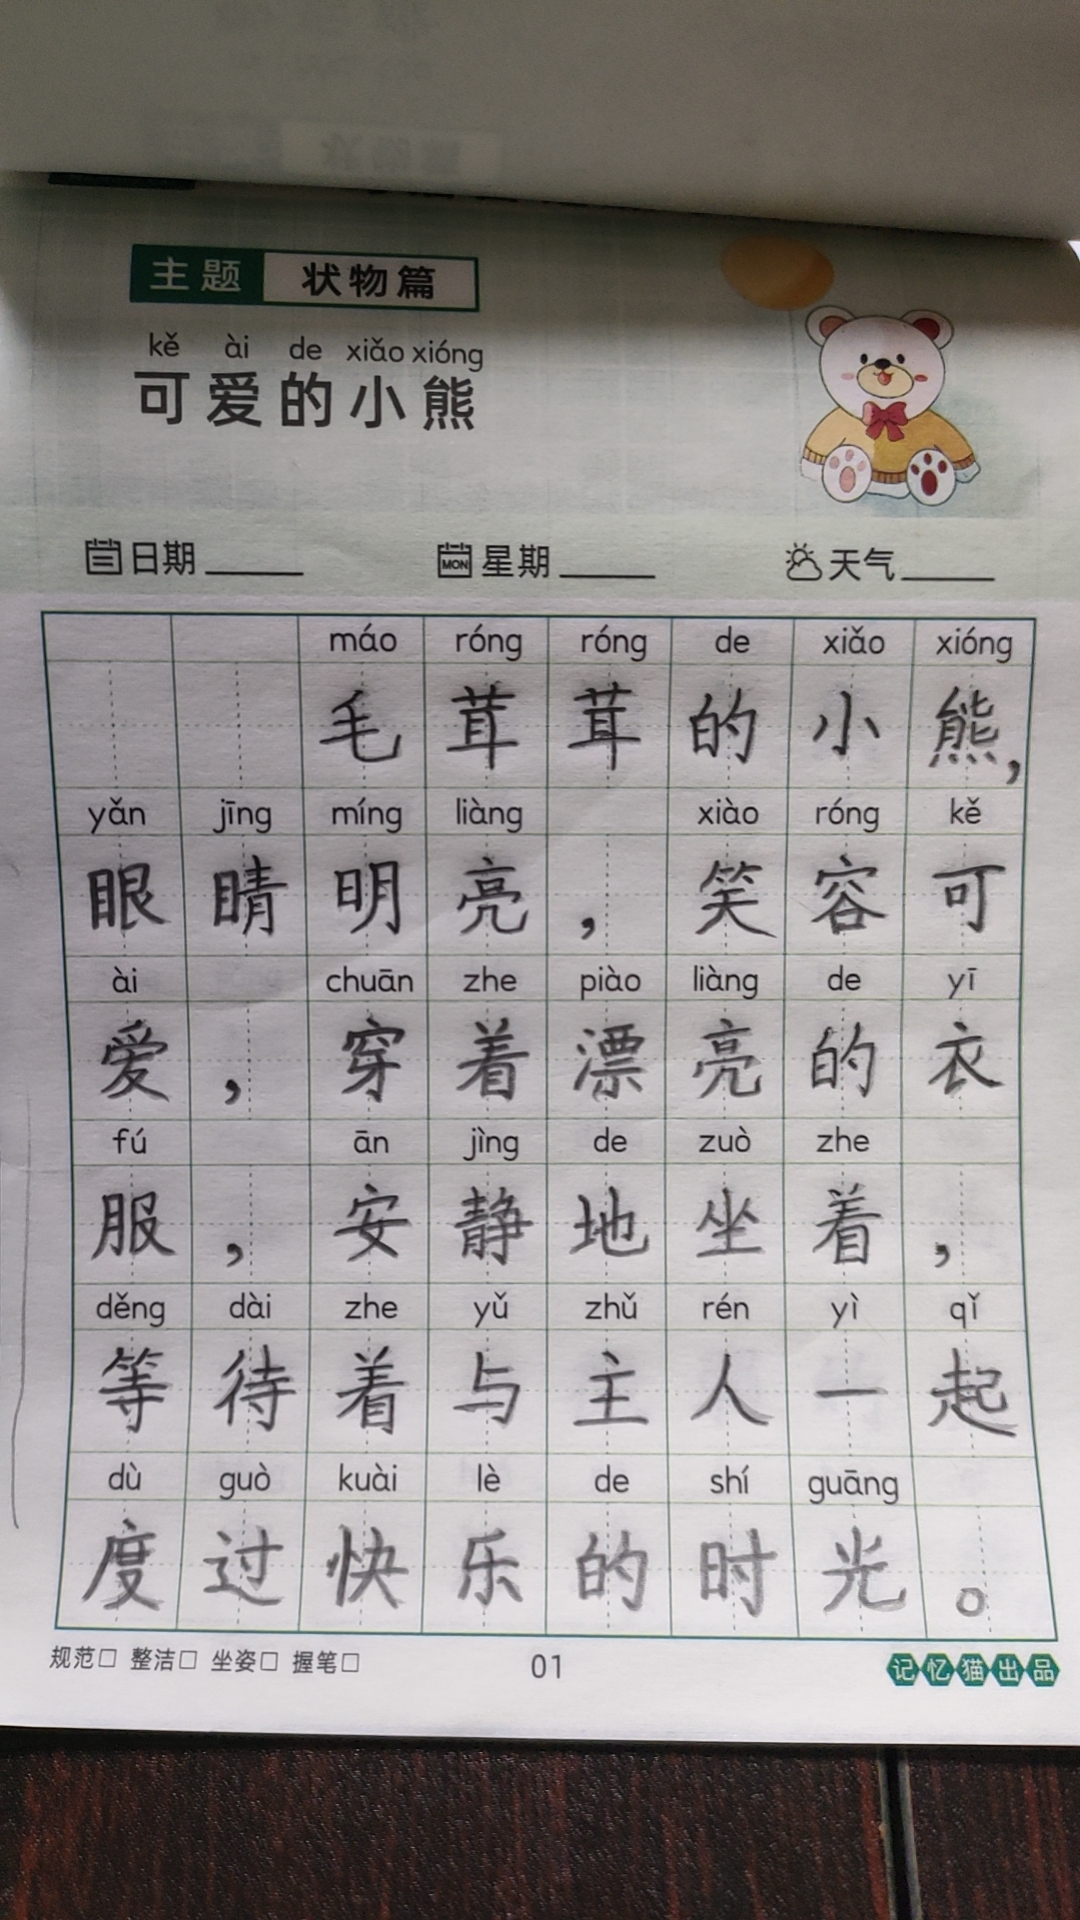 主题 状物篇
kě ài de xiǎo xióng
可爱的小熊
日期 MON 星期 天气
máo róng róng de xiǎo xióng
毛茸茸的小熊，
yǎn jīng míng liàng xiào róng kě
眼睛明亮，笑容可
ài chuān zhe piào liàng de yī
爱，穿着漂亮的衣
fú ān jìng de zuò zhe
服，安静地坐着，
děng dài zhe yǔ zhǔ rén yì qǐ
等待着与主人一起
dù guò kuài lè de shí guāng
度过快乐的时光。
规范□ 整洁□ 坐姿□ 握笔□ 01 记忆猫出品